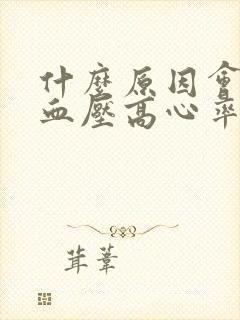 什麼原因會
血壓高心率
茸葦